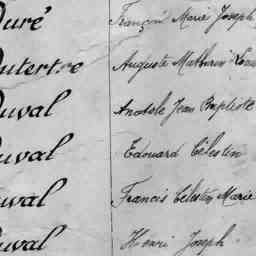 Duré François Marie Joseph
Dutertre Auguste Mathurin Louis
Duval Anatole Jean Baptiste
Duval Edouard Célestin
Duval Francis Célestin Marie
Duval Henri Joseph